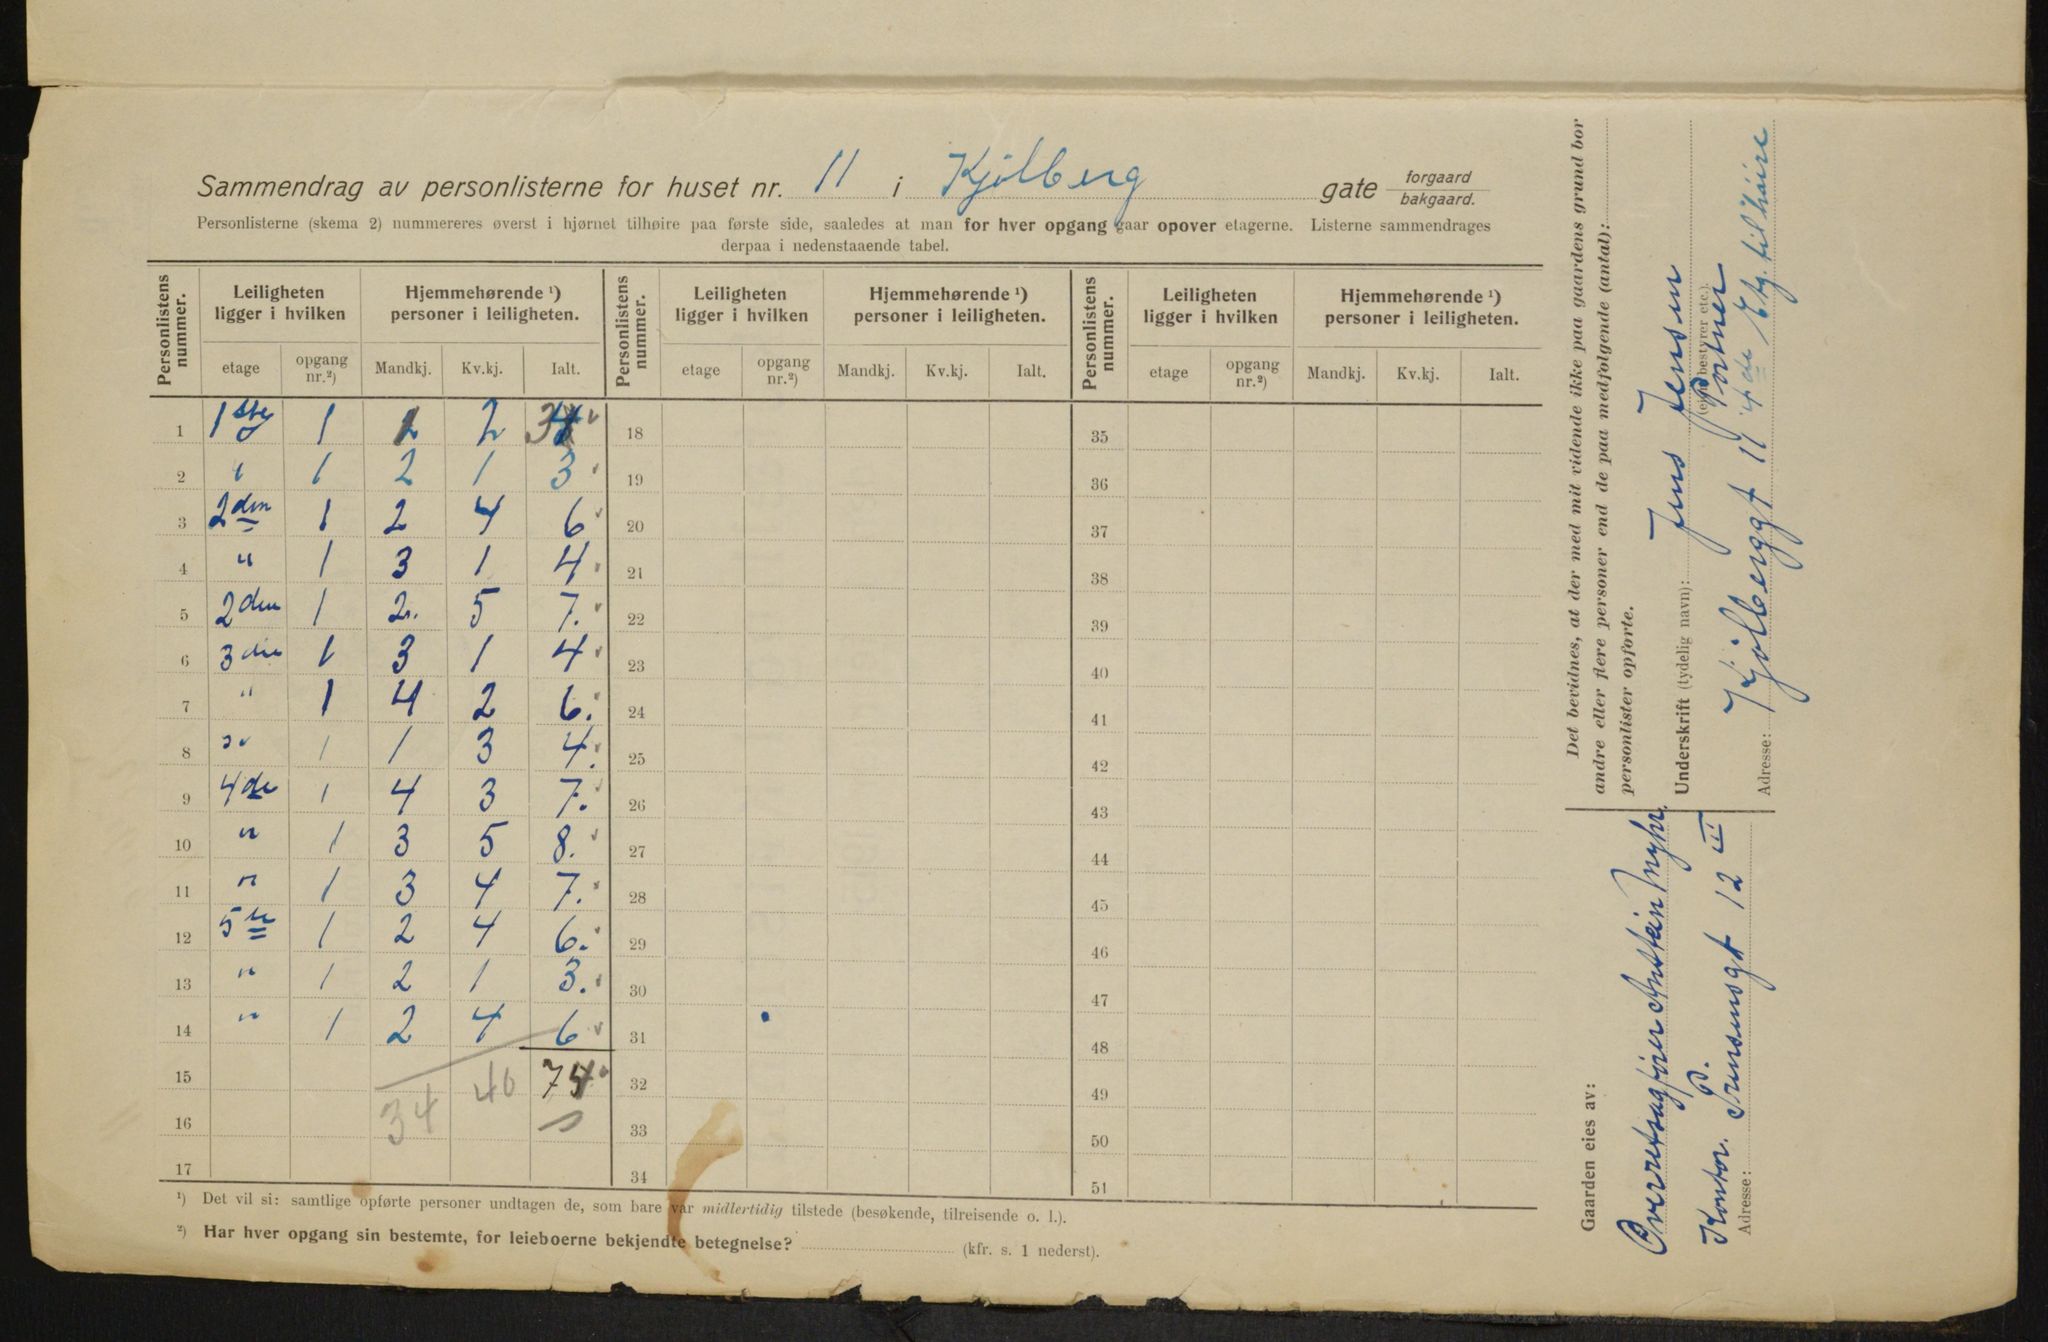 Sammendrag av personlisterne for huset nr. 11 i Kjølberg gate forgaard bakgaard.
Personlisterne (skema 2) nummereres øverst i hjørnet tilhøire paa første side, saaledes at man for hver opgang gaar opover etagerne. Listerne sammendrages
derpaa i nedenstaaende tabel.
Personlistens nummer. Leiligheten ligger i hvilken Hjemmehørende ¹) personer i leiligheten. Personlistens nummer. Leiligheten ligger i hvilken Hjemmehørende ¹) personer i leiligheten. Personlistens nummer. Leiligheten ligger i hvilken Hjemmehørende ¹) personer i leiligheten.
etage opgang nr.²) Mandkj. Kv.kj. Ialt. etage opgang nr.²) Mandkj. Kv.kj. Ialt. etage opgang nr.²) Mandkj. Kv.kj. Ialt.
1 1 1 2 3 18 35
2 " 1 2 1 3 19 36
3 2den 1 2 4 6 20 37
4 " 1 3 1 4 21 38
5 2den 1 2. 5 7. 22 39
6 3die 1 3 1 4 23 40
7 " 1 4 2 6. 24 41
8 " 1 1 3 4. 25 42
9 4de 1 4 3 7. 26 43
10 " 1 3 5 8. 27 44
11 " 1 3 4 7. 28 45
12 5te 1 2 4 6. 29 46
13 " 1 2 1 3. 30 47
14 " 1 2 4 6 31 48
15 34 40 74 32 49
16 33 50
17 34 51
¹) Det vil si: samtlige opførte personer undtagen de, som bare var midlertidig tilstede (besøkende, tilreisende o. l.).
²) Har hver opgang sin bestemte, for leieboerne bekjendte betegnelse? (kfr. s. 1 nederst).
Det bevidnes, at der med mit vidende ikke paa gaardens grund bor
andre eller flere personer end de paa medfølgende (antal):
personlister opførte.
Underskrift (tydelig navn): Jens Jensen
(eier, bestyrer etc.). Portner
Adresse: Kjølberggt 11 4de Etg. tilhøire
Gaarden eies av:
Overretssagfører
Kontor. Prinsensgt 12 III
Adresse: